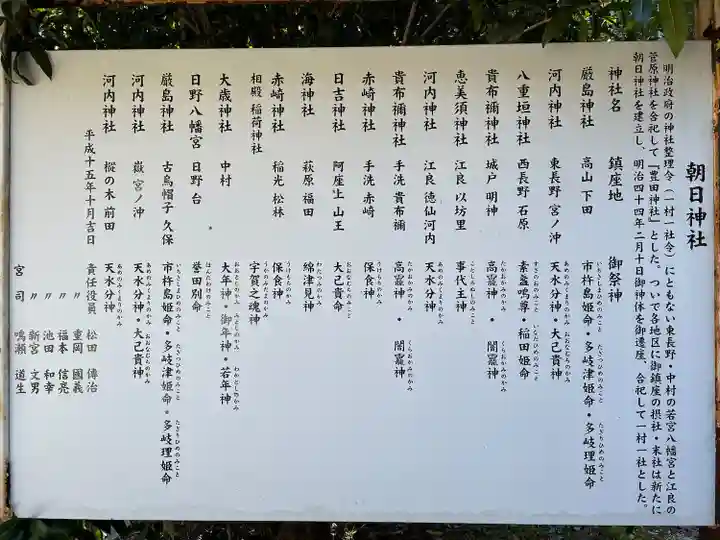 朝日神社
明治政府の神社整理令（一村一社令）にともない東長野・中村の若宮八幡宮と江良の
菅原神社を合祀して『豊田神社』とした。ついで各地区に御鎮座の摂社・末社は新たに
朝日神社を建立し、明治四十四年二月十日御神体を御遷座、合祀して一村一社とした。
神社名 鎮座地 御祭神
厳島神社 高山 下田 市杵島姫命・多岐津姫命・多岐理姫命
河内神社 東長野 宮ノ沖 天水分神・大己貴神
八重垣神社 西長野 石原 素盞嗚尊・稲田姫命
貴布禰神社 城戸 明神 高龗神・闇龗神
恵美須神社 江良 以坊里 事代主神
河内神社 江良 徳仙 河内 天水分神
貴布禰神社 手洗 貴布禰 高龗神・闇龗神
赤崎神社 手洗 赤崎 保食神
日吉神社 阿座生 山王 大己貴命
海神社 萩原 福田 綿津見神
赤崎神社 稲光 松林 保食神
相殿 稲荷神社 宇賀之魂神
大歳神社 中村 大年神・御年神・若年神
日野八幡宮 日野 台 誉田別命
厳島神社 古烏帽子 久保 市杵島姫命・多岐津姫命・多岐理姫命
河内神社 嶽 宮ノ沖 天水分神・大己貴神
河内神社 樅の木 前田 天水分神
平成十五年十月吉日
責任役員 松田 傳治
〃 重岡 國義
〃 福本 信亮
〃 池田 和幸
〃 新宮 文男
宮司 鳴瀬 道生